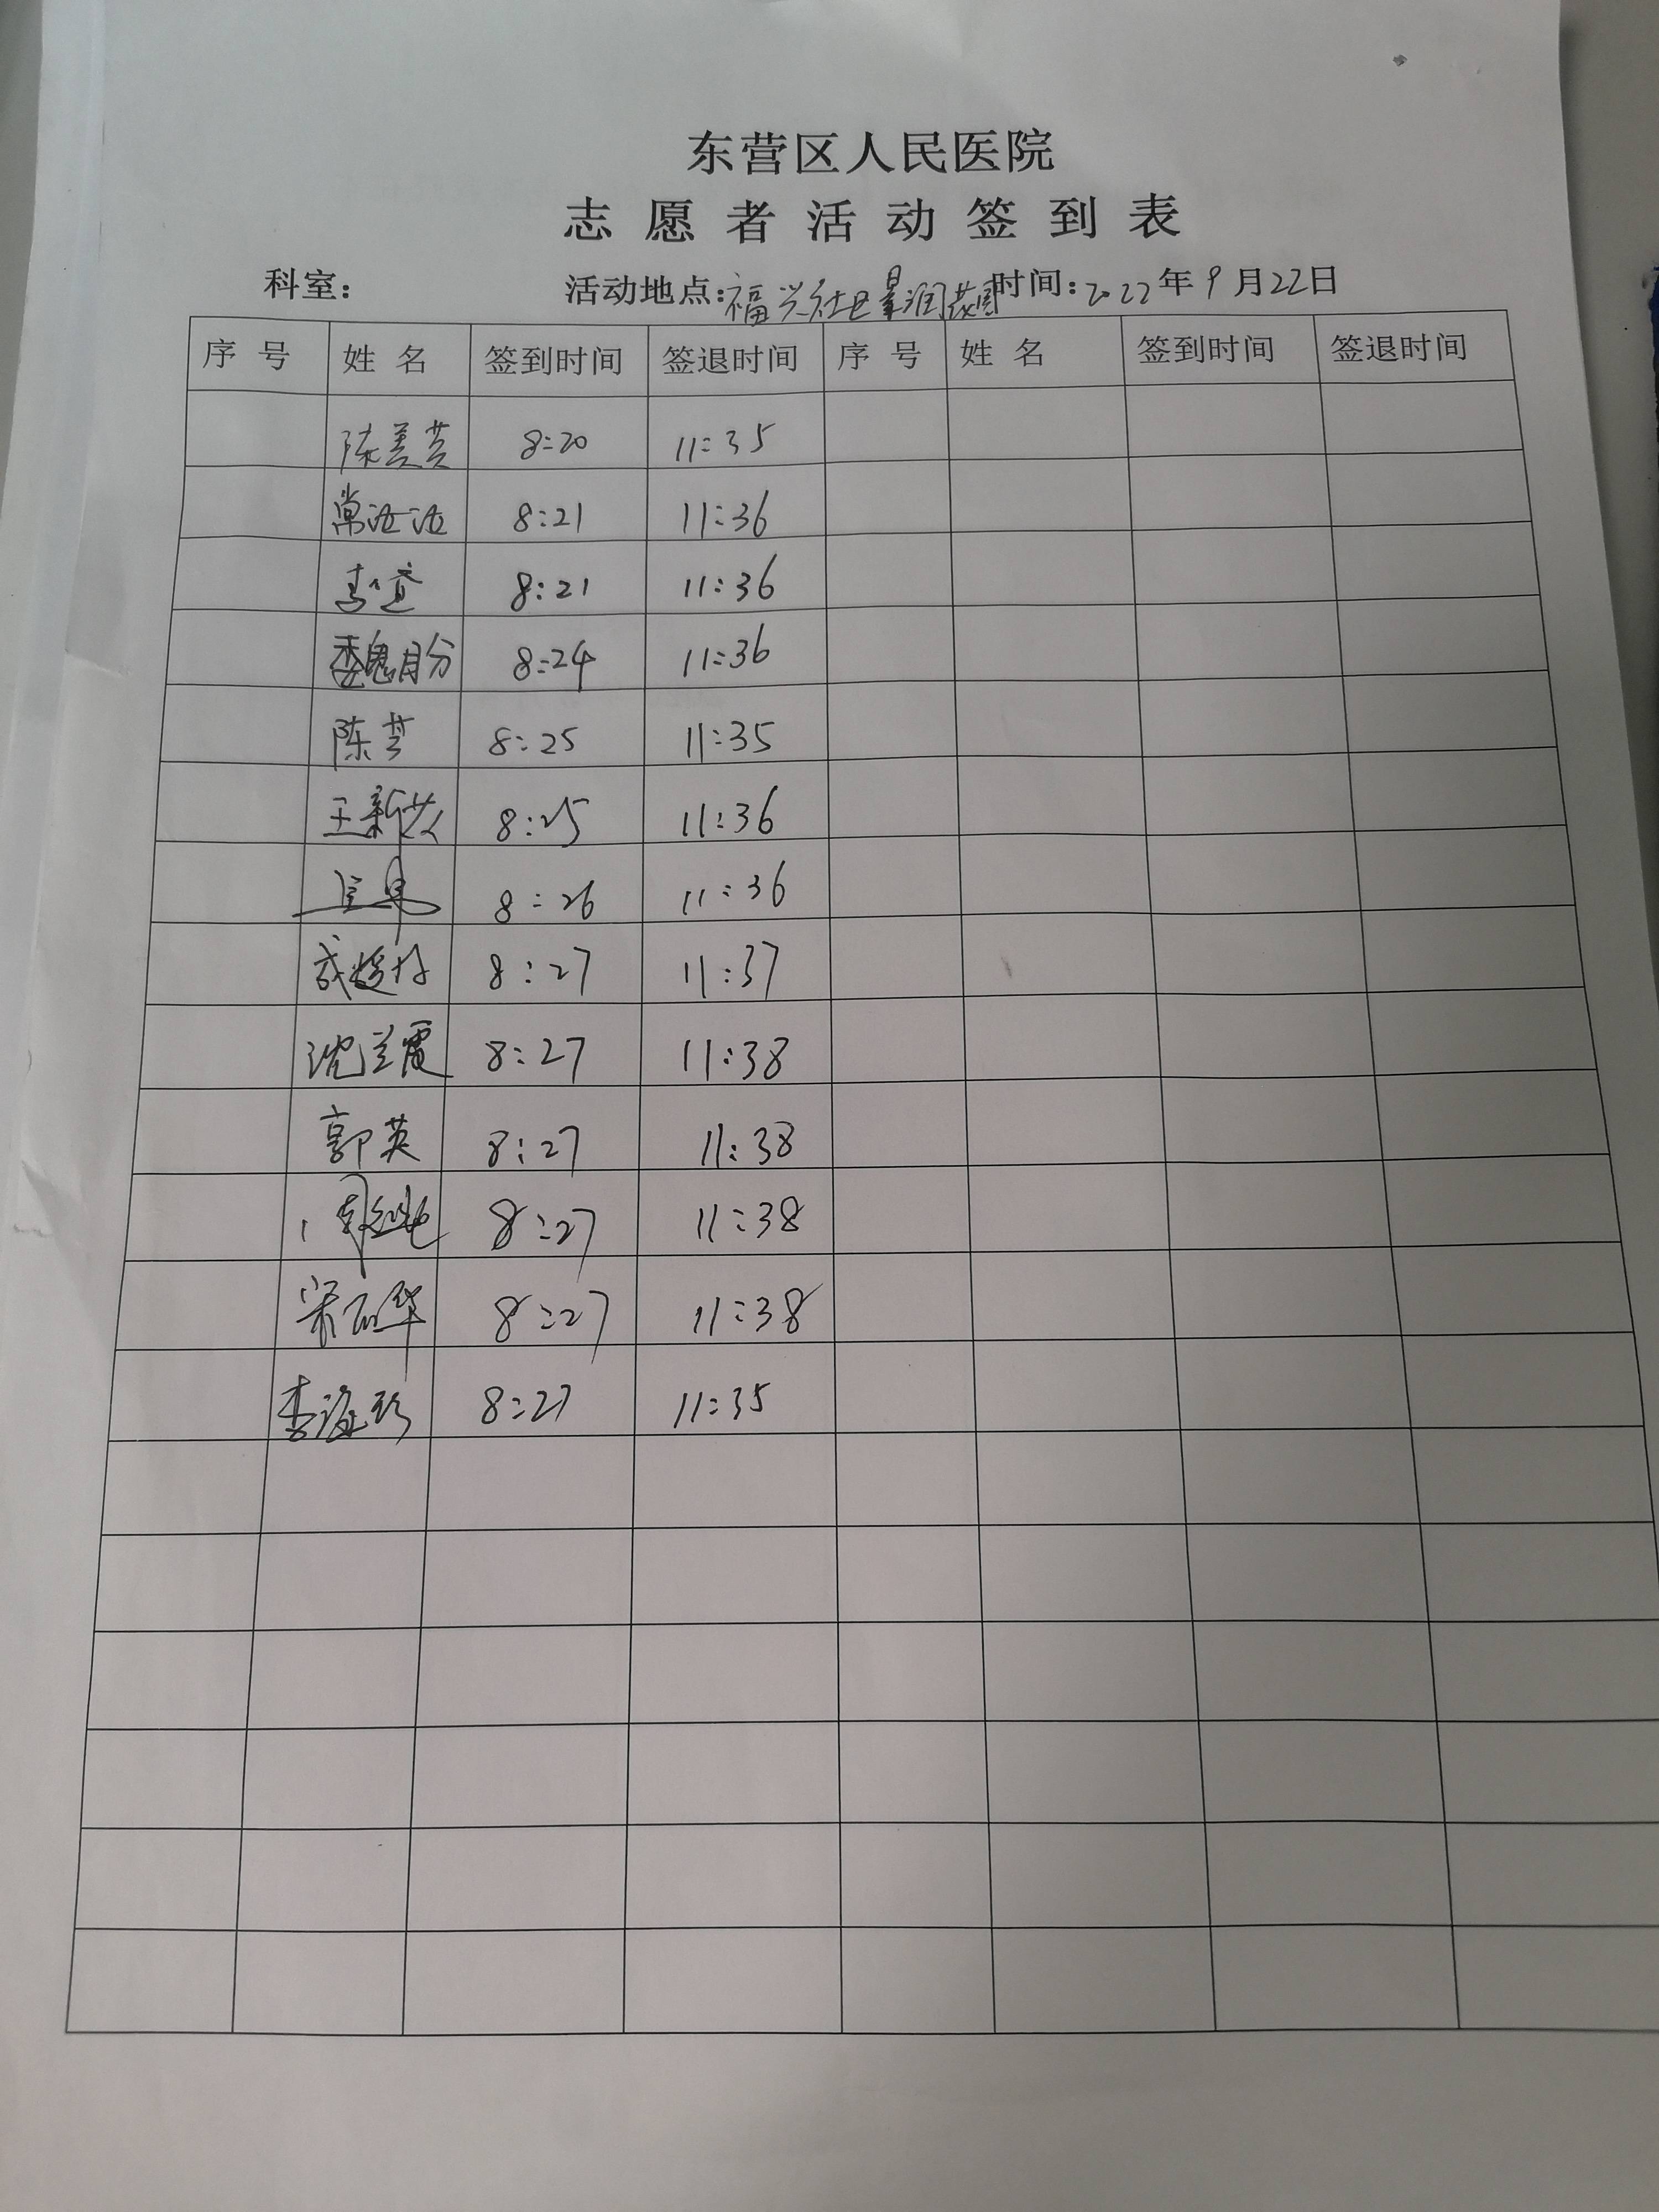 东营区人民医院
志愿者活动签到表
科室： 活动地点：福兴社区景润花园 时间：2022年9月22日
序号 姓名 签到时间 签退时间 序号 姓名 签到时间 签退时间
陈美芸 8:20 11:35
常洁洁 8:21 11:36
8:21 11:36
魏月分 8:24 11:36
陈芳 8:25 11:35
王新 8:25 11:36
8:26 11:36
成 8:27 11:37
沈兰霞 8:27 11:38
郭英 8:27 11:38
8:27 11:38
宋 华 8:27 11:38
李 珍 8:27 11:35